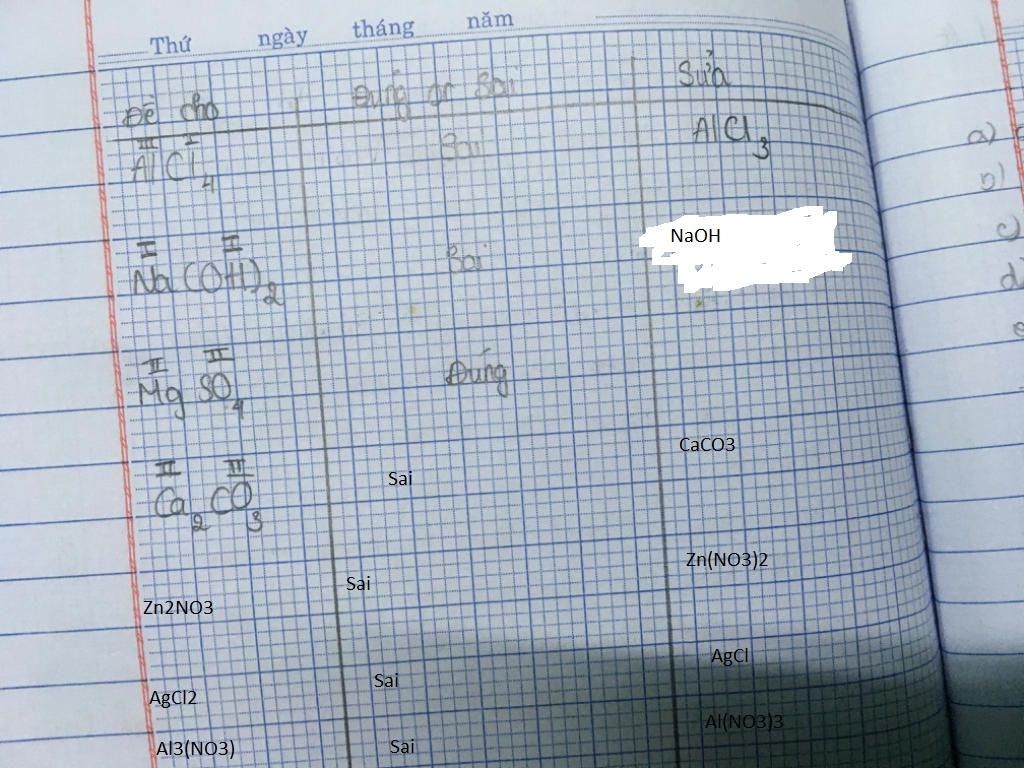 Thứ ngày tháng năm
Đề cho Đúng or Sai Sửa
III I
AlCl4 Sai AlCl3
I II
Na(OH)2 Sai NaOH
II II
MgSO4 Đúng
II II
Ca2CO3 Sai CaCO3
Zn2NO3 Sai Zn(NO3)2
AgCl2 Sai AgCl
Al3(NO3) Sai Al(NO3)3
a)
b)
c)
d)
e